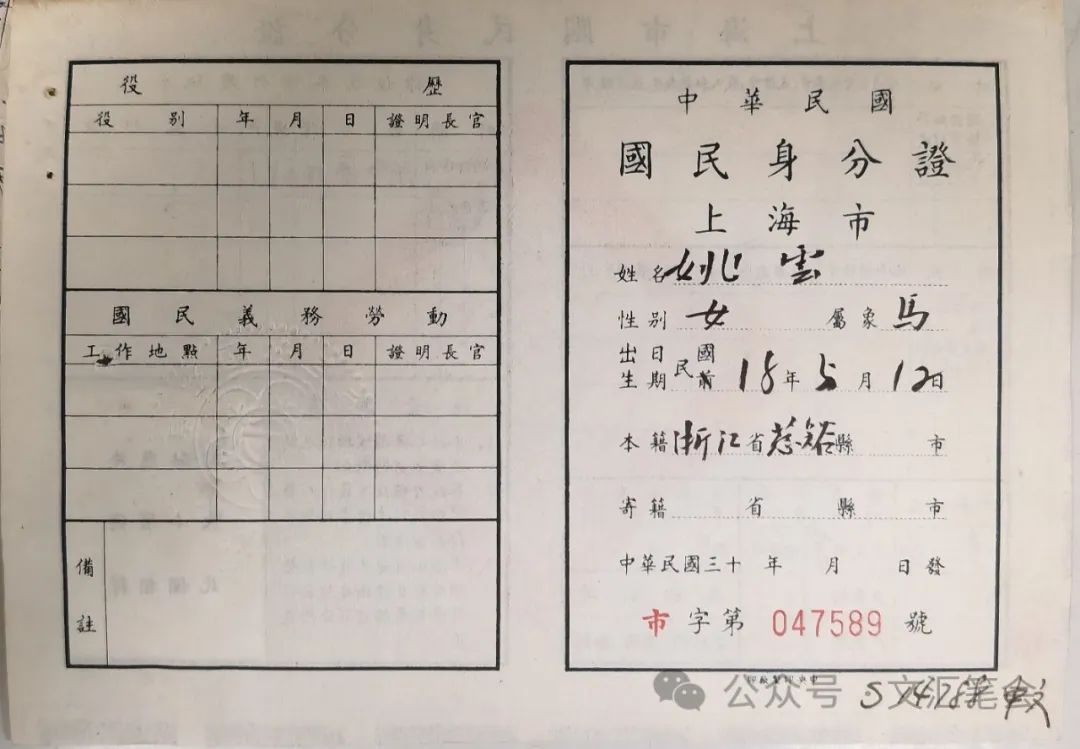 役 歷
役別 年 月 日 證明長官
國民義務勞動
工作地點 年 月 日 證明長官
備註
中華民國
國民身分證
上海市
姓名 姚雲
性別 女 屬象 馬
出生日期 民國前 18年5月12日
本籍 浙江省慈谿縣 市
寄籍 省 縣 市
中華民國三十 年 月 日發
市字第 047589 號
公众号·文汇笔会